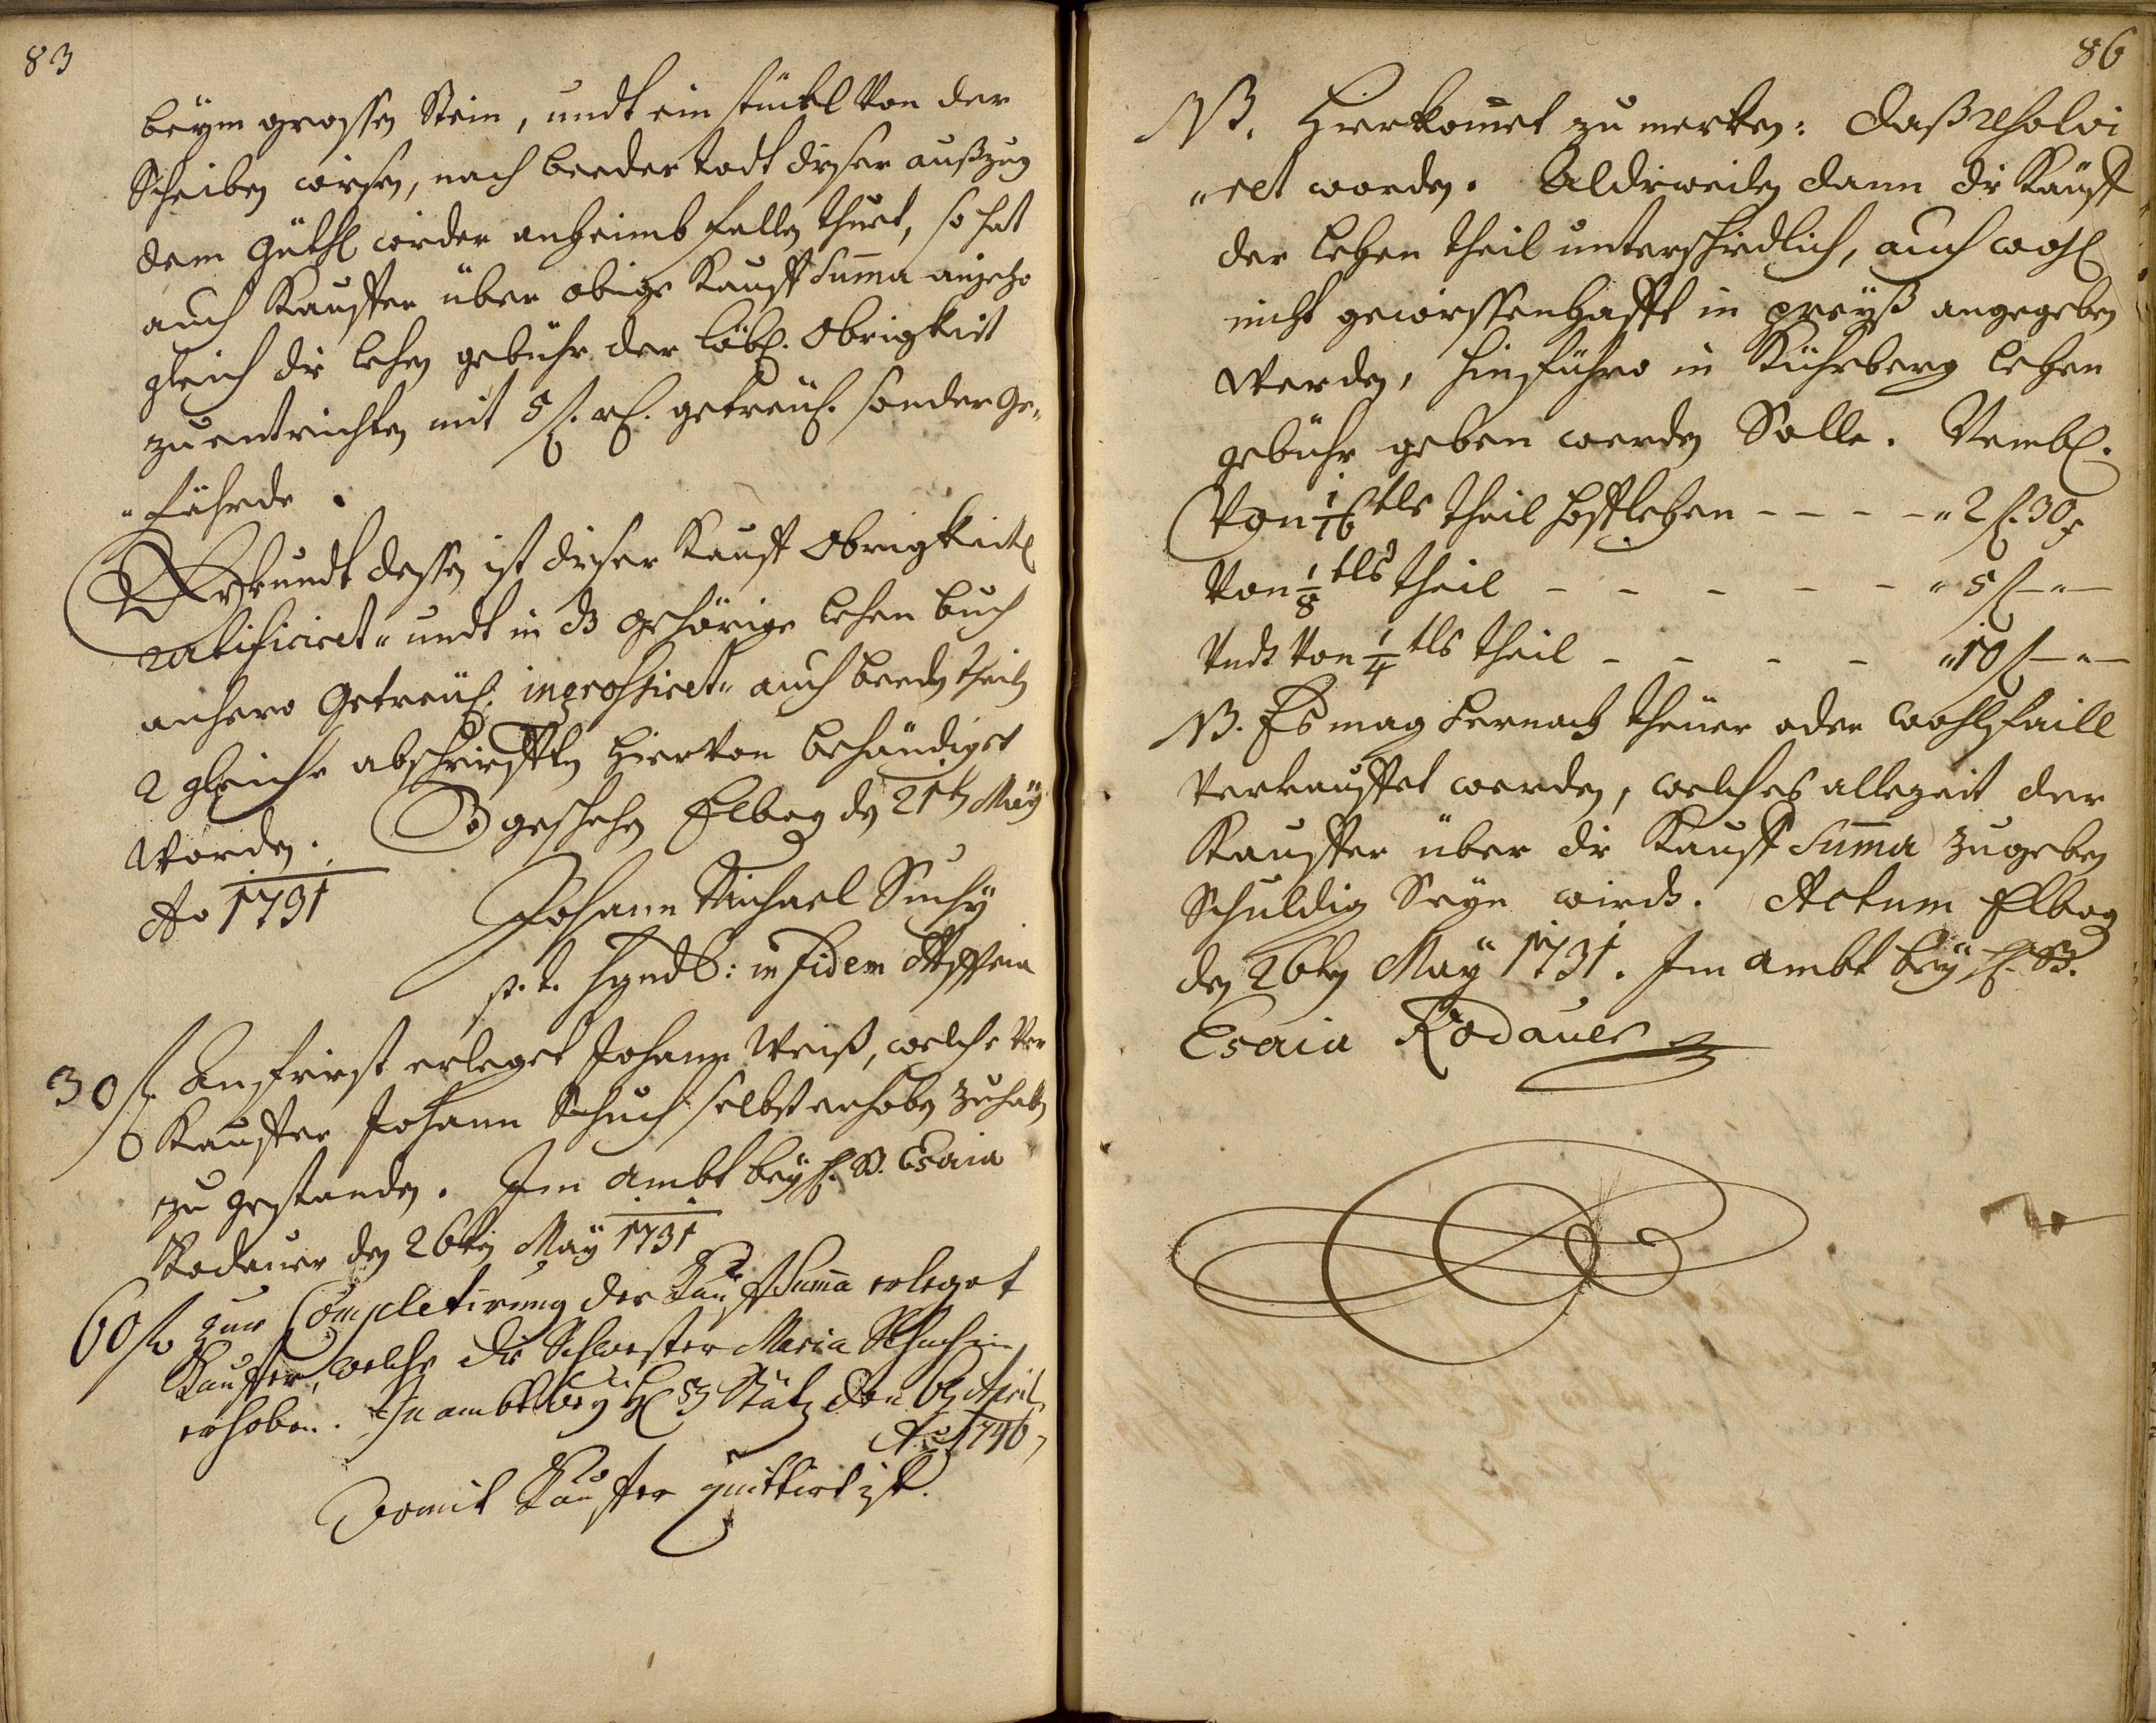 83
beÿm grossen Stein, undt ein stückl von der
Scheiben wiesen, nach beeder todt dieser außzug
dem güthl wieder anheimb fallen thuet, so hat
auch Kauffer über obige Kauff Suma anjetzo
gleich die lehen gebühr der löbl. Obrigkeit
zu entrichten mit 5 fl. rh. getreul. sonder Ge„
„fährde.
Uhrkundt dessen ist dieser Kauff Obrigkeitl
ratificiret„ undt in dz gehörige lehen buch
anhero Getreul. ingrossiret„ auch beeden theiln
2 gleiche abschriefften hiervon behändiget
worden. So geschehen Elbog den 21ten Maÿ
Ao 1731
Johann Michael Suchÿ
p. t. Syndic: in fidem
30 fl. Anfrist erleget Johann Weiß, welche Ver
Kauffer Johann Schuch selbst erhoben zu haben
zu gestanden. Im ambt beÿ H. B. Esaia
Rodauer den 26ten Maÿ 1731
60 fl. zur Completirung der Kauff Suma erleget
Kauffer, welche die Schwester Maria Schuchin
erhoben. In ambt beÿ H B den 6 April
Ao 1746,
Vomit Kauffer quittirt ist.
86
NB. Hierkomet zu merken: daß resolvi
„ret worden. Aldieweilen dann die Käuff
der lehen theil unterschiedlich, auch wohl
nicht gewiessenhafft in preyß angegeben
werden, hinführo in Kührberg lehen
gebühr geben werden Solle. Nembl.
Von 1/16 tls theil hofflehen - - - - „ 2 fl. 30 x
Von 1/8 tls theil - - - - - „ 5 fl — „ —
Undt Von 1/4 tls theil - - - - „ 10 fl — „ —
NB. Es mag hernach theuer oder wohlfaill
verkauffet werden, welches allezeit der
Kauffer über die Kauff Suma zugeben
Schuldig Seÿn wirdt. Actum Elbog
den 26ten Maÿ 1731. Im ambt beÿ H. B.
Esaia Rodauer